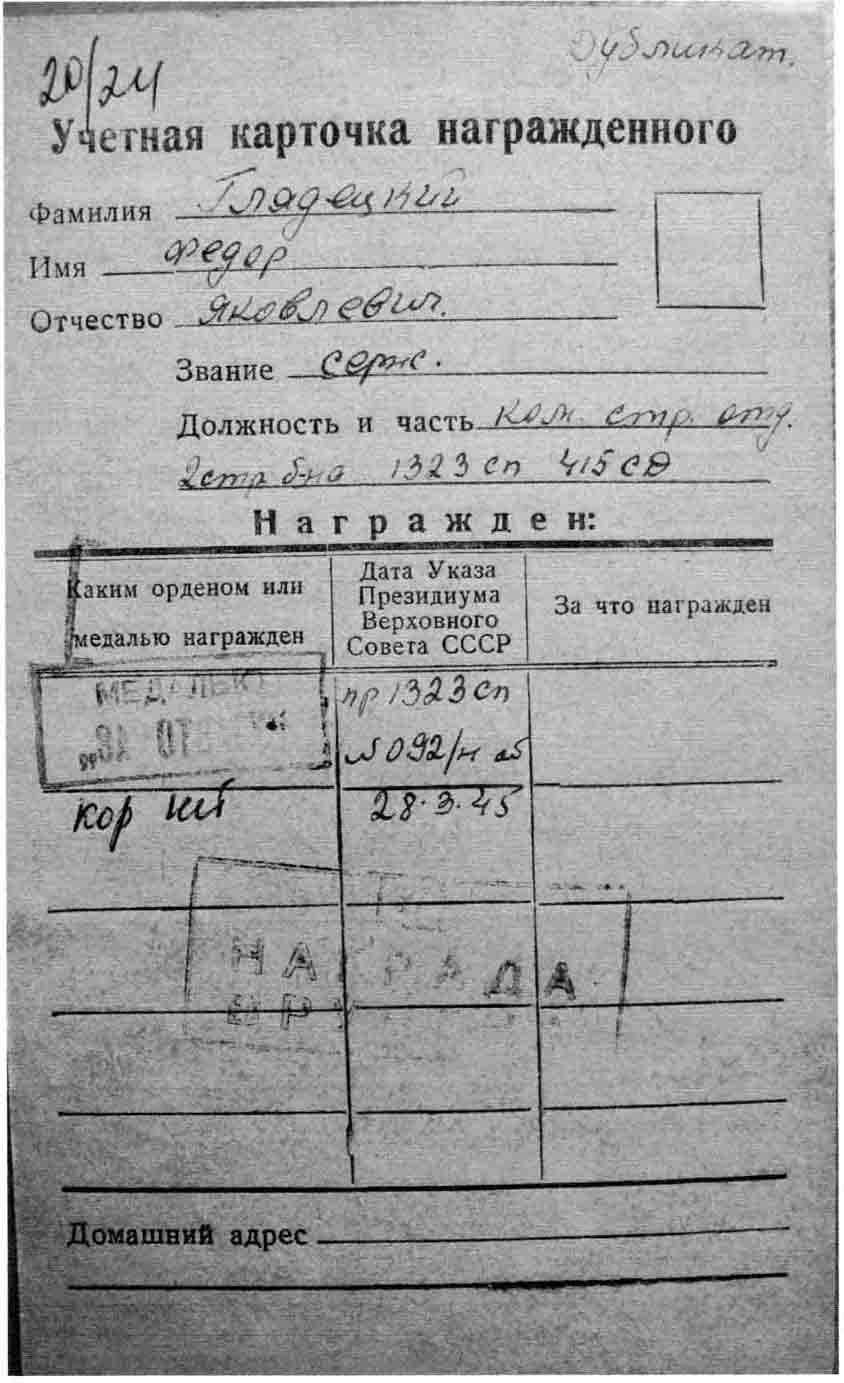 Дубликат.
20/24
Учетная карточка награжденного
Фамилия Глядецкий
Имя Федор
Отчество Яковлевич.
Звание серж.
Должность и часть ком. стр. отд.
2 стр б-на 1323 сп 415 СД
Награжден:
Каким орденом или медалью награжден
Дата Указа Президиума Верховного Совета СССР
За что награжден
МЕДАЛЬЮ
„ЗА ОТВАГУ"
пр 1323 сп
№ 092/н от
28.3.45
кор
НАГРАДА
Домашний адрес